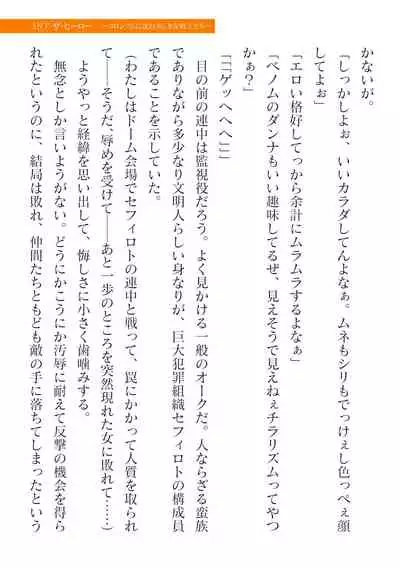 かないが。
「しっかしよぉ、いいカラダしてんよなぁ。ムネもシリもでっけぇし色っぺぇ顔
してよぉ」
「エロい格好してっから余計にムラムラするよなぁ」
「ベノムのダンナもいい趣味してるぜ、見えそうで見えねぇチラリズムってやつ
かぁ？」
「「「ゲッへへへ」」」
目の前の連中は監視役だろう。よく見かける一般のオークだ。人ならざる蛮族
でありながら多少なり文明人らしい身なりが、巨大犯罪組織セフィロトの構成員
であることを示していた。
（わたしはドーム会場でセフィロトの連中と戦って、罠にかかって人質を取られ
て――そうだ、辱めを受けて――あと一歩のところを突然現れた女に敗れて……）
ようやっと経緯を思い出して、悔しさに小さく歯噛みする。
無念としか言いようがない。どうにかこうにか汚辱に耐えて反撃の機会を得ら
れたというのに、結局は敗れ、仲間たちともども敵の手に落ちてしまったという